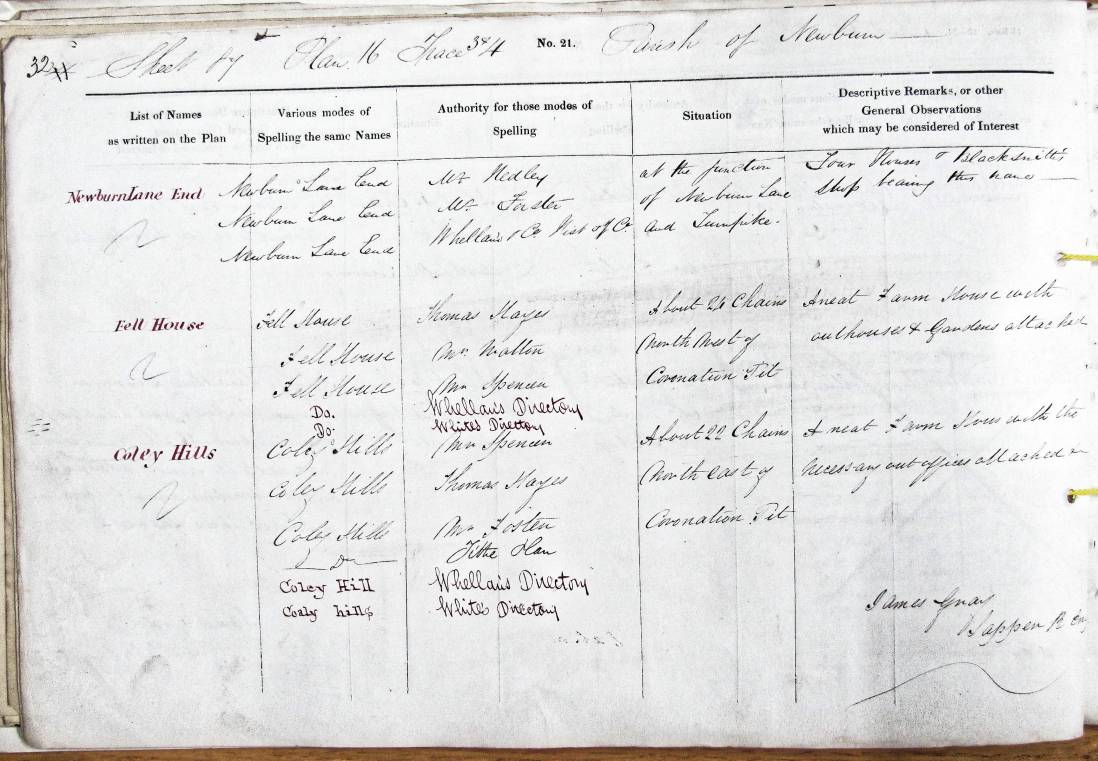 32
Sheet 87 Plan. 16 Trace 3 & 4 No. 21. Parish of Newburn
List of Names
as written on the Plan
Various modes of
Spelling the same Names
Authority for those modes of
Spelling
Situation
Descriptive Remarks, or other
General Observations
which may be considered of Interest
Newburn Lane End
Newburn Lane End
Newburn Lane End
Newburn Lane End
Mr Hedley
Mr. Forster
Whellan's & Co. Hist of Co.
at the junction
of Newburn Lane
and Turnpike.
Four Houses & Blacksmith's
Shop bearing this name
Fell House
Fell House
Fell House
Fell House
Do.
Do.
Thomas Hayes
Mr. Walton
Mr Spencer
Whellan's Directory
White's Directory
About 24 Chains
North West of
Coronation Pit
A neat Farm House with
outhouses & Gardens attached
Coley Hills
Coley Hills
Coley Hills
Coley Hills
Do
Coley Hill
Coaly hills
Mr Spencer
Thomas Hayes
Mr Foster
Tithe Plan
Whellan's Directory
White's Directory
About 22 Chains
North East of
Coronation Pit
A neat Farm Hous with the
necessary out offices attached
James Gray
Sapper R Eng